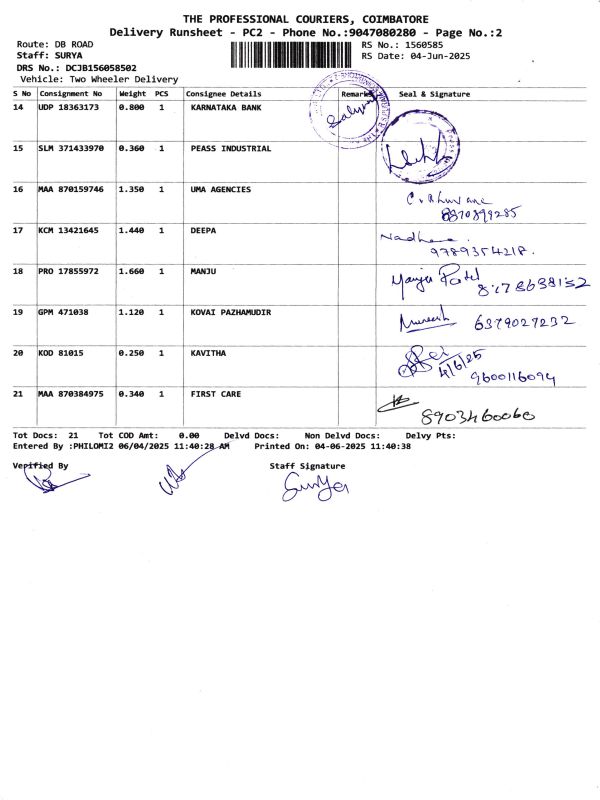 THE PROFESSIONAL COURIERS, COIMBATORE
Delivery Runsheet - PC2 - Phone No.:9047080280 - Page No.:2
Route: DB ROAD RS No.: 1560585
Staff: SURYA RS Date: 04-Jun-2025
DRS No.: DCJB156058502
Vehicle: Two Wheeler Delivery
S No Consignment No Weight PCS Consignee Details Remarks Seal & Signature
14 UDP 18363173 0.800 1 KARNATAKA BANK
15 SLM 371433970 0.360 1 PEASS INDUSTRIAL
16 MAA 870159746 1.350 1 UMA AGENCIES
8870899285
17 KCM 13421645 1.440 1 DEEPA
9789354218.
18 PRO 17855972 1.660 1 MANJU Manju Patel
19 GPM 471038 1.120 1 KOVAI PAZHAMUDIR 6379027232
20 KOD 81015 0.250 1 KAVITHA
4/6/25
9600116094
21 MAA 870384975 0.340 1 FIRST CARE
8903460060
Tot Docs: 21 Tot COD Amt: 0.00 Delvd Docs: Non Delvd Docs: Delvy Pts:
Entered By :PHILOMI2 06/04/2025 11:40:28 AM Printed On: 04-06-2025 11:40:38
Verified By Staff Signature
Surya